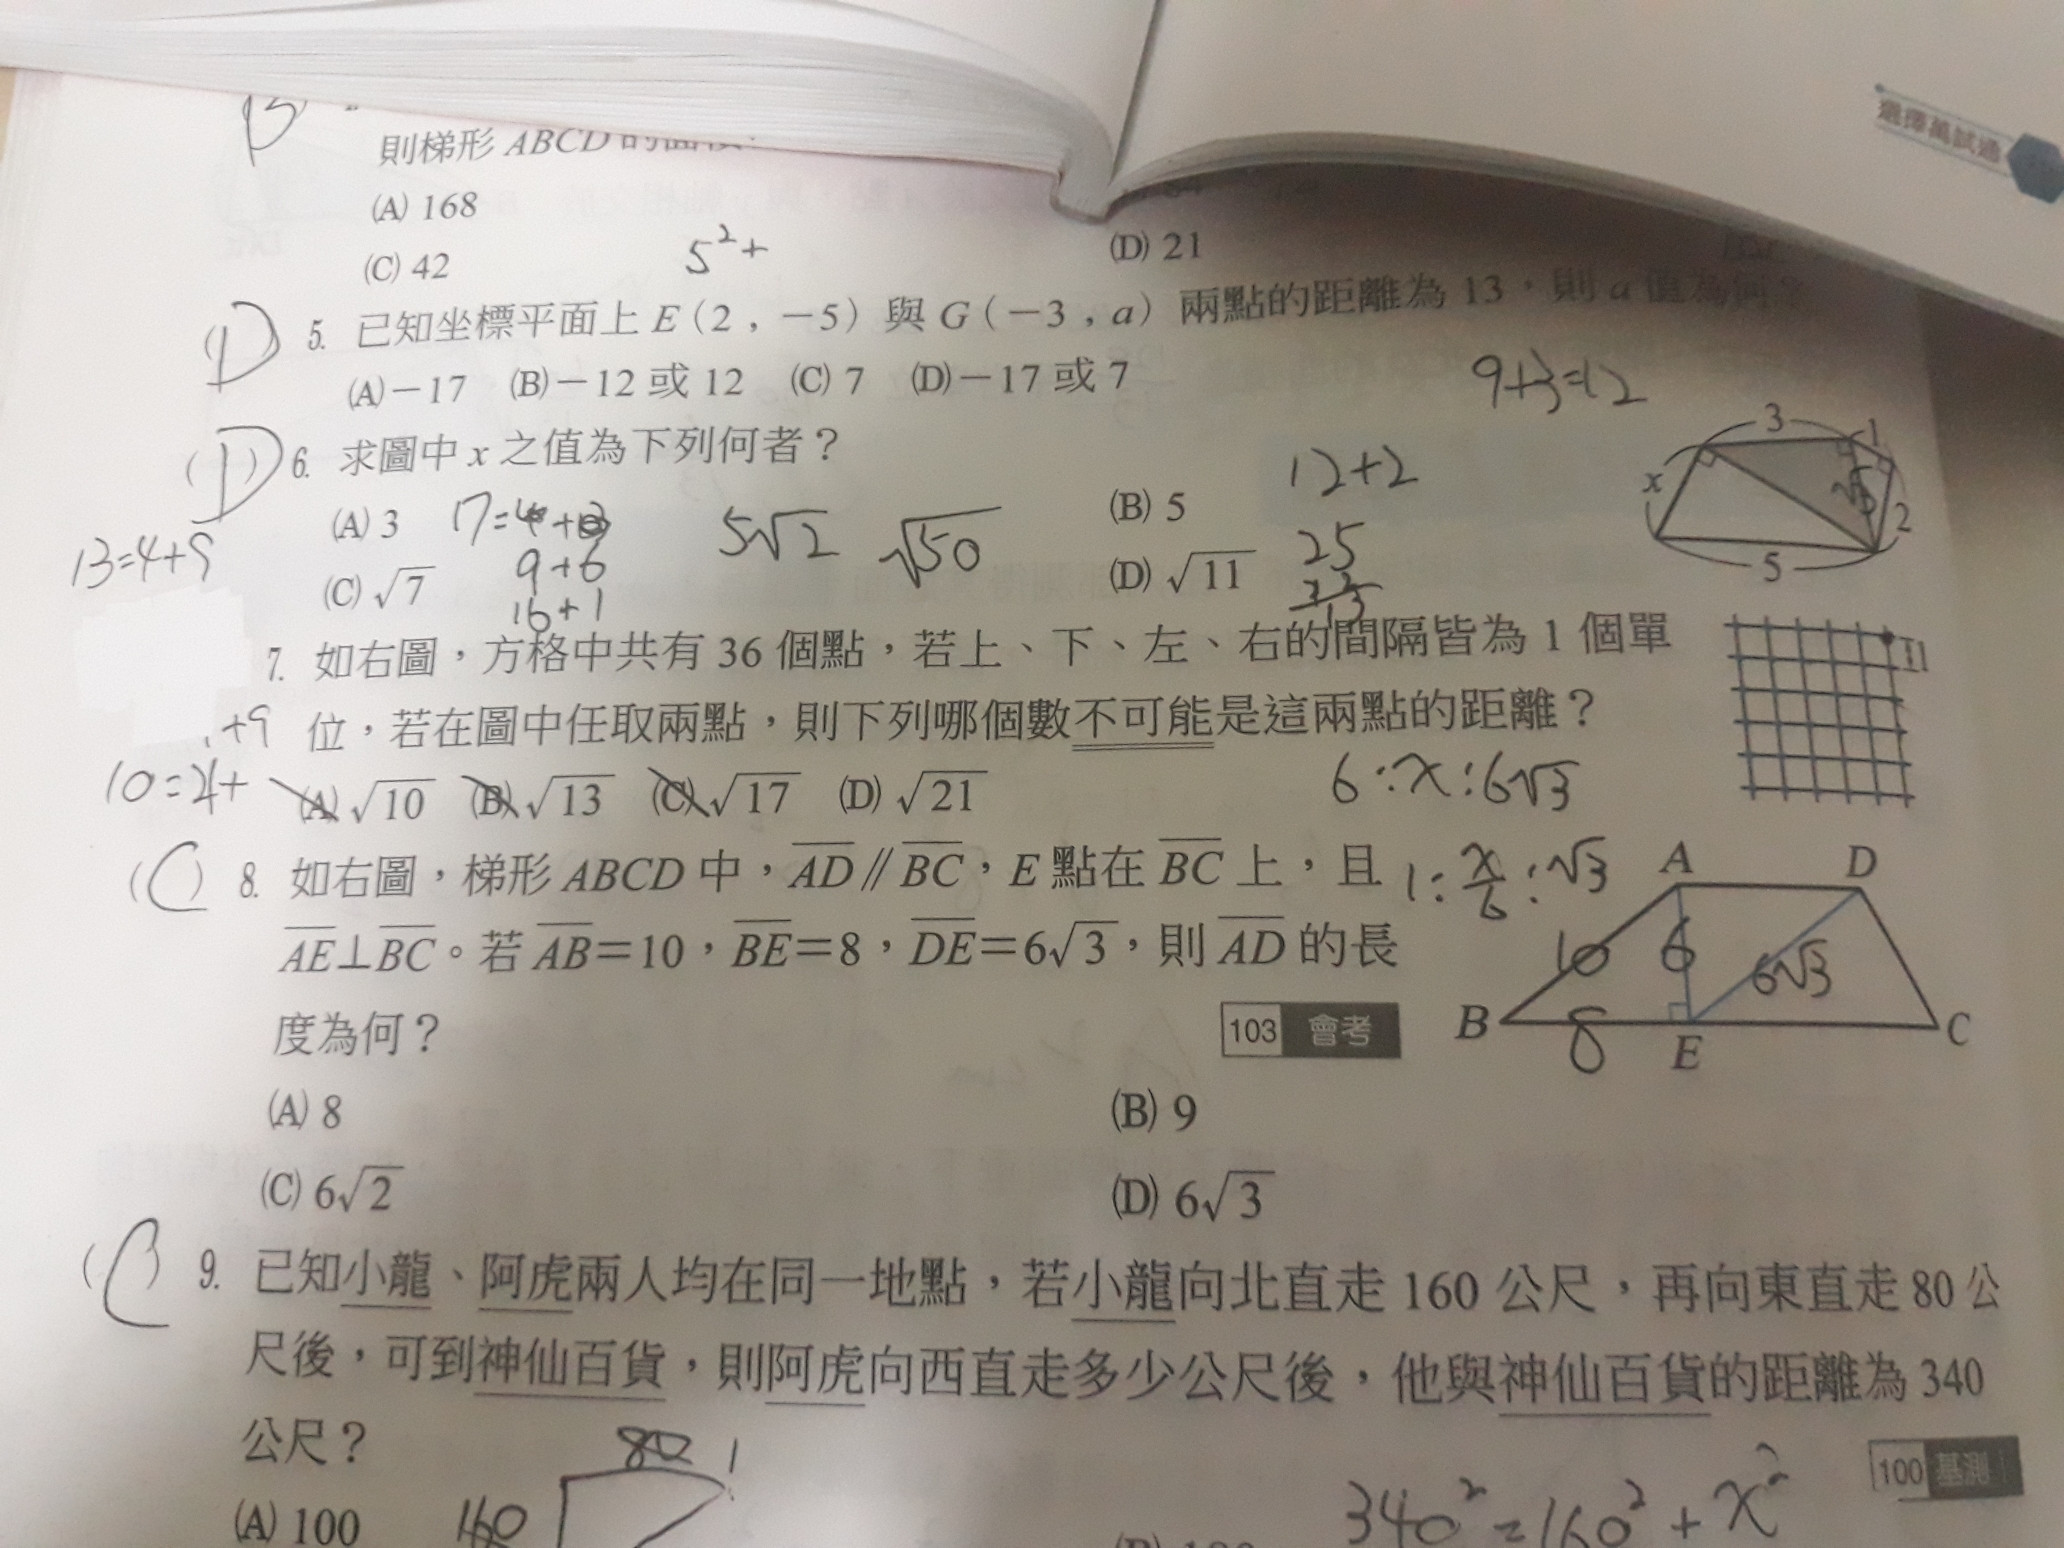 選擇萬試通
B
則梯形 ABCD 的面積
(A) 168
(C) 42
5²+
(D) 21
(D) 5. 已知坐標平面上 E(2,-5) 與 G(-3,a) 兩點的距離為 13,則 a 值為何?
(A)-17 (B)-12 或 12 (C) 7 (D)-17 或 7
9+3=12
(D) 6. 求圖中 x 之值為下列何者?
12+2
3
1
x
√5
2
5
(A) 3
17=4+13
5√2
√50
(B) 5
25
13=4+9
9+6
(C) √7
16+1
(D) √11
13
7. 如右圖,方格中共有 36 個點,若上、下、左、右的間隔皆為 1 個單
+9
位,若在圖中任取兩點,則下列哪個數不可能是這兩點的距離?
10=4+
(A) √10 (B) √13 (C) √17 (D) √21
6:x:6√3
(C) 8. 如右圖,梯形 ABCD 中,AD // BC,E 點在 BC 上,且
1:x/6:√3
AE⊥BC。若 AB=10,BE=8,DE=6√3,則 AD 的長
度為何?
103 會考
A
D
10
6
6√3
B
8
E
C
(A) 8
(B) 9
(C) 6√2
(D) 6√3
(C) 9. 已知小龍、阿虎兩人均在同一地點,若小龍向北直走 160 公尺,再向東直走 80 公
尺後,可到神仙百貨,則阿虎向西直走多少公尺後,他與神仙百貨的距離為 340
公尺?
100 基測
80
160
340²=160²+x²
(A) 100